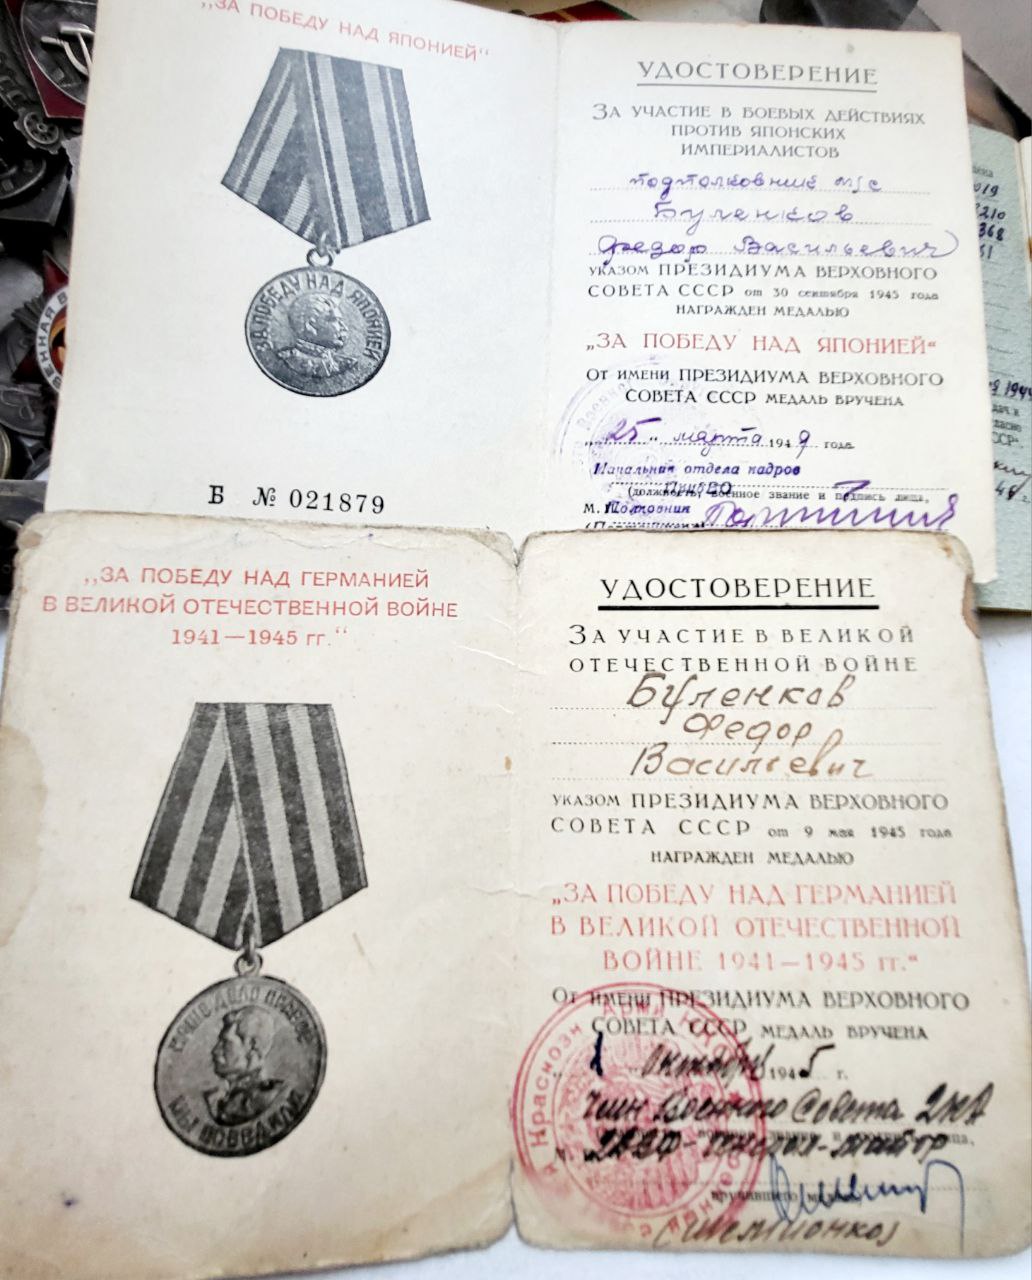 „ЗА ПОБЕДУ НАД ЯПОНИЕЙ“
ЗА ПОБЕДУ НАД ЯПОНИЕЙ
Б № 021879
УДОСТОВЕРЕНИЕ
ЗА УЧАСТИЕ В БОЕВЫХ ДЕЙСТВИЯХ
ПРОТИВ ЯПОНСКИХ
ИМПЕРИАЛИСТОВ
подполковник м/с
Буленков
Федор Васильевич
УКАЗОМ ПРЕЗИДИУМА ВЕРХОВНОГО
СОВЕТА СССР от 30 сентября 1945 года
НАГРАЖДЕН МЕДАЛЬЮ
„ЗА ПОБЕДУ НАД ЯПОНИЕЙ“
ОТ ИМЕНИ ПРЕЗИДИУМА ВЕРХОВНОГО
СОВЕТА СССР МЕДАЛЬ ВРУЧЕНА
„25“ марта 1949 года
Начальник отдела кадров
(должность, военное звание и подпись лица,
М. Полковник
„ЗА ПОБЕДУ НАД ГЕРМАНИЕЙ
В ВЕЛИКОЙ ОТЕЧЕСТВЕННОЙ ВОЙНЕ
1941—1945 гг.“
НАШЕ ДЕЛО ПРАВОЕ
МЫ ПОБЕДИЛИ
УДОСТОВЕРЕНИЕ
ЗА УЧАСТИЕ В ВЕЛИКОЙ
ОТЕЧЕСТВЕННОЙ ВОЙНЕ
Буленков
Федор
Васильевич
УКАЗОМ ПРЕЗИДИУМА ВЕРХОВНОГО
СОВЕТА СССР от 9 мая 1945 года
НАГРАЖДЕН МЕДАЛЬЮ
„ЗА ПОБЕДУ НАД ГЕРМАНИЕЙ
В ВЕЛИКОЙ ОТЕЧЕСТВЕННОЙ
ВОЙНЕ 1941—1945 гг.“
ОТ ИМЕНИ ПРЕЗИДИУМА ВЕРХОВНОГО
СОВЕТА СССР МЕДАЛЬ ВРУЧЕНА
1 октября 1945 г.
Член Военного Совета 2КА
2ДВФ - генерал-майор